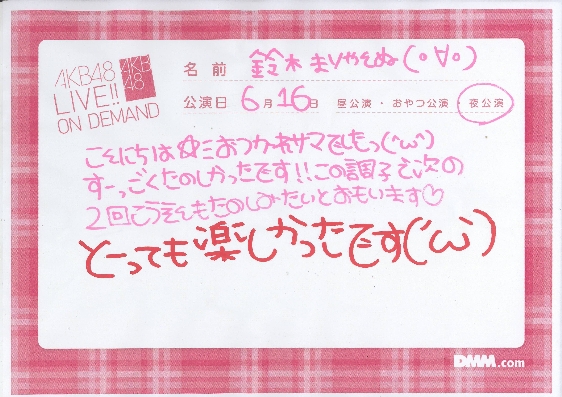 AKB48
LIVE!!
ON DEMAND
AKB
48
名前 鈴木まりやんぬ(°∀°)
公演日 6月16日 昼公演・おやつ公演・夜公演
こんにちは☆ミおつかれサマでしたっ('ω')
すーっごくたのしかったです!!この調子で次の
2回こうえんもたのしみたいとおもいます♡
とーっても楽しかったでーす('ω')
DMM.com